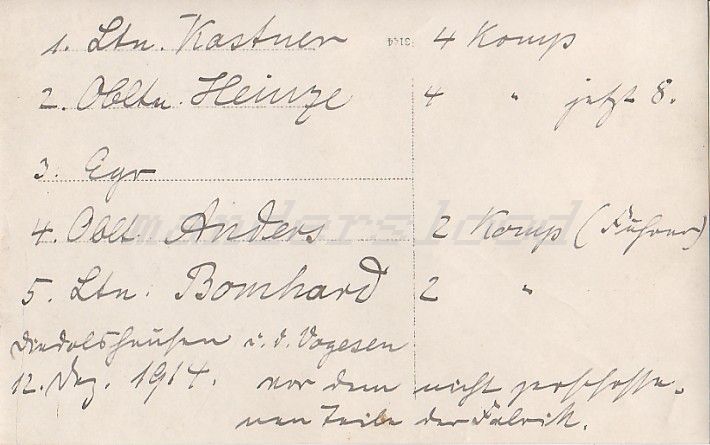 1. Ltn. Kastner 4 Komp
2. Obltn. Heinze 4 " jetzt 8.
3. Egr
4. Oblt Anders 2 Komp (Führer)
5. Ltn. Bomhard 2 "
Diedolshausen i. d. Vogesen
12. Dez. 1914. vor dem nicht zerschosse-
nen Teile der Fabrik.
3144
manderslood